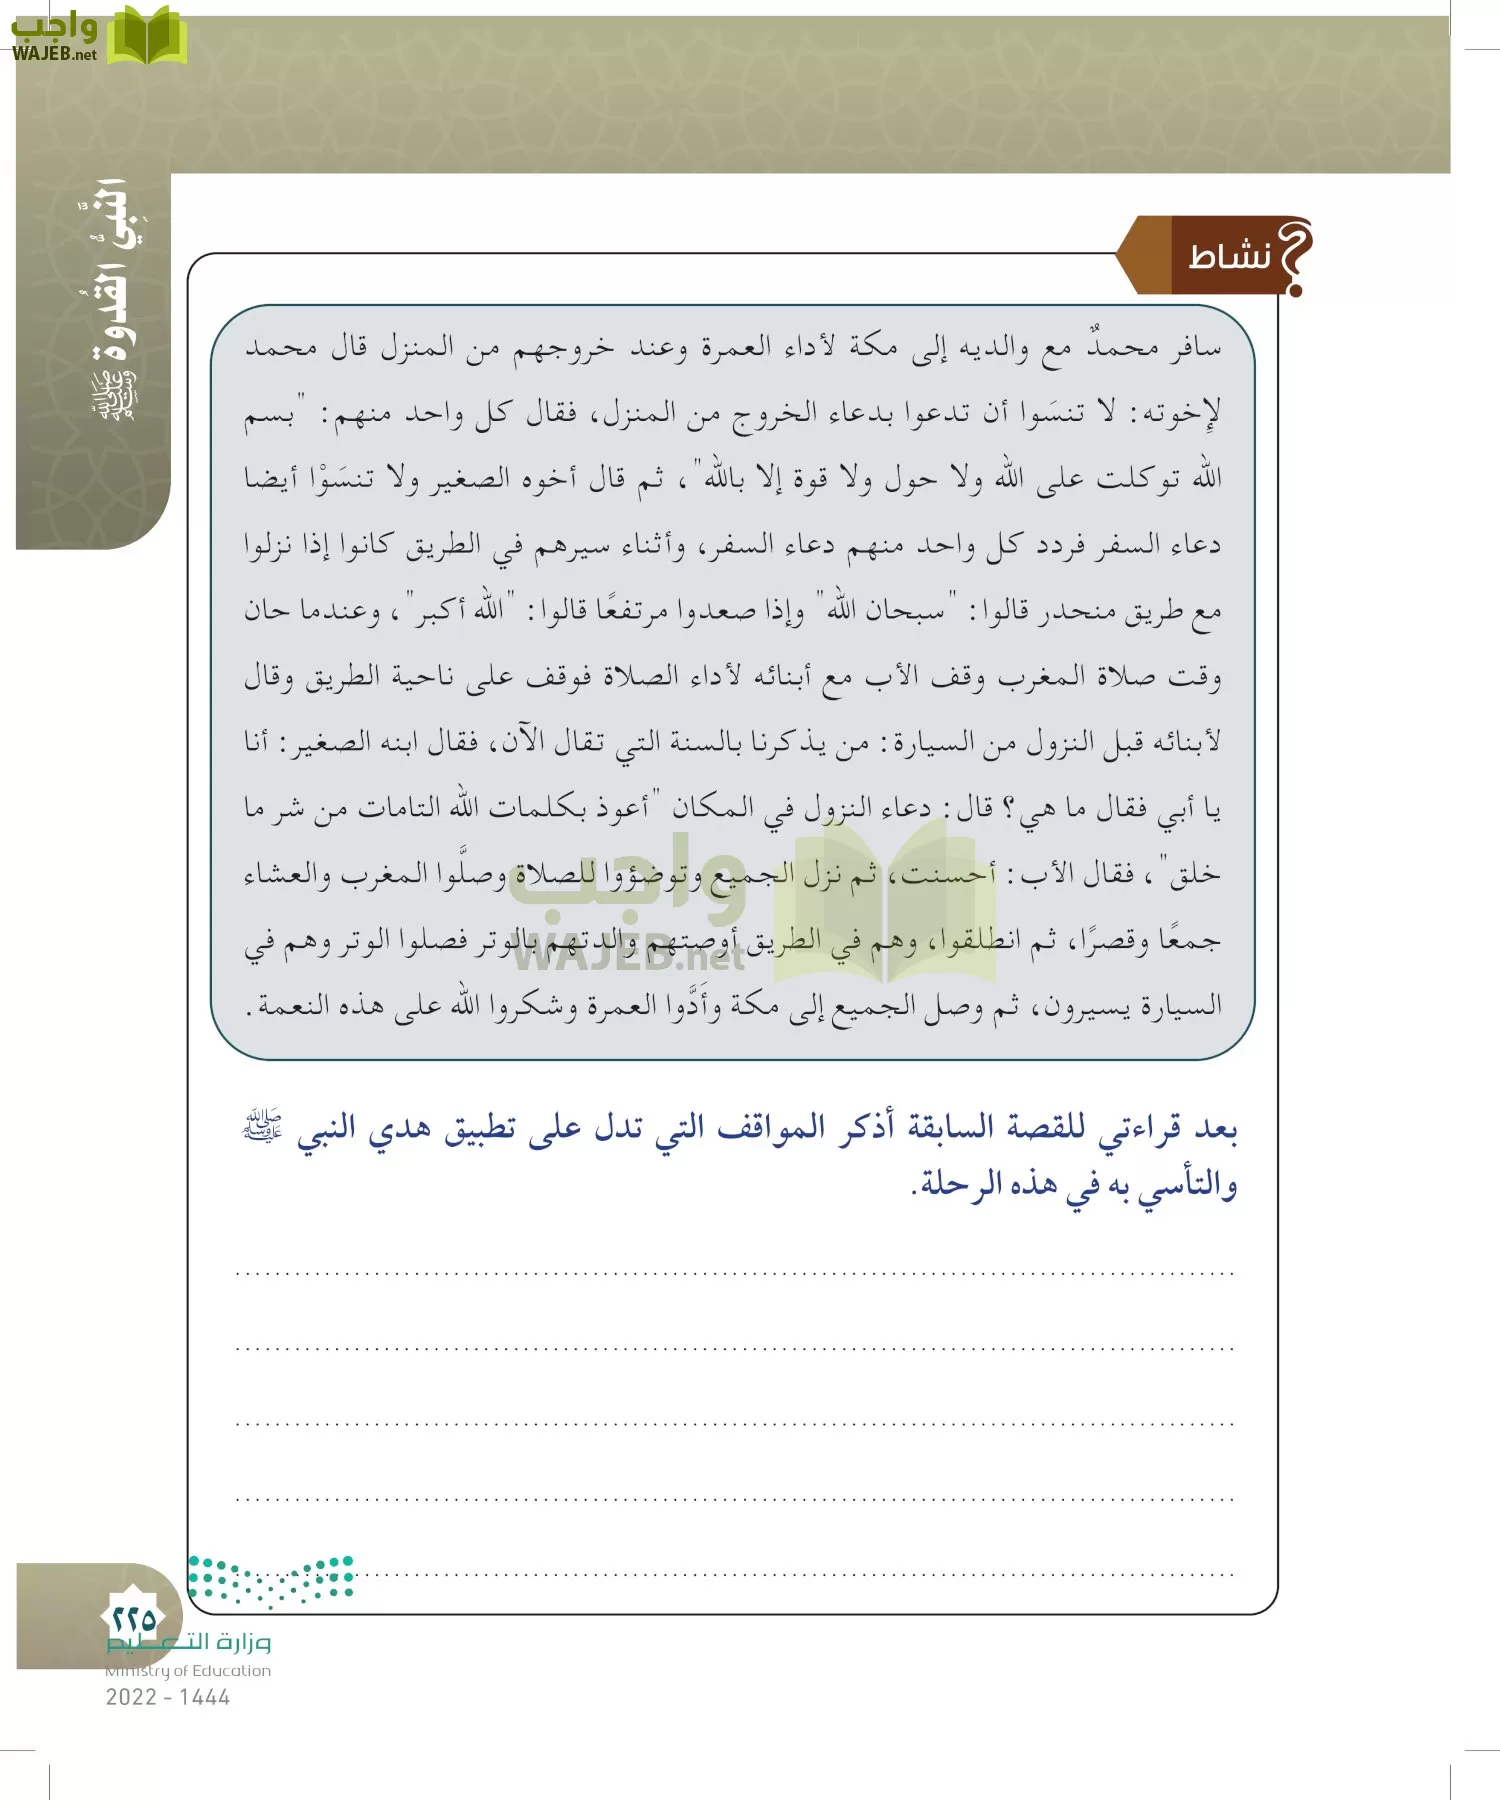 واجب
WAJEB.net
النَّبِيُّ القُدوة ﷺ
نشاط
سافر محمدٌ مع والديه إلى مكة لأداء العمرة وعند خروجهم من المنزل قال محمد
لإِخوته: لا تنسَوا أن تدعوا بدعاء الخروج من المنزل، فقال كل واحد منهم: "بسم
الله توكلت على الله ولا حول ولا قوة إلا بالله"، ثم قال أخوه الصغير ولا تنسَوْا أيضا
دعاء السفر فردد كل واحد منهم دعاء السفر، وأثناء سيرهم في الطريق كانوا إذا نزلوا
مع طريق منحدر قالوا: "سبحان الله" وإذا صعدوا مرتفعًا قالوا: "الله أكبر"، وعندما حان
وقت صلاة المغرب وقف الأب مع أبنائه لأداء الصلاة فوقف على ناحية الطريق وقال
لأبنائه قبل النزول من السيارة: من يذكرنا بالسنة التي تقال الآن، فقال ابنه الصغير: أنا
يا أبي فقال ما هي؟ قال: دعاء النزول في المكان "أعوذ بكلمات الله التامات من شر ما
خلق"، فقال الأب: أحسنت، ثم نزل الجميع وتوضؤوا للصلاة وصلَّوا المغرب والعشاء
جمعًا وقصرًا، ثم انطلقوا، وهم في الطريق أوصتهم والدتهم بالوتر فصلوا الوتر وهم في
السيارة يسيرون، ثم وصل الجميع إلى مكة وأَدَّوا العمرة وشكروا الله على هذه النعمة.
واجب
WAJEB.net
بعد قراءتي للقصة السابقة أذكر المواقف التي تدل على تطبيق هدي النبي ﷺ
والتأسي به في هذه الرحلة.
٢٢٥
وزارة التعليم
Ministry of Education
2022 - 1444